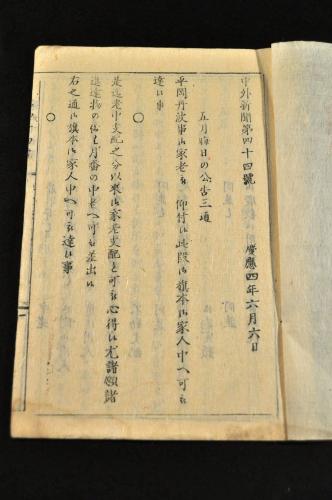 中外新聞第四十四號
慶應四年六月六日
五月晦日の公告三通
平岡丹波事御家老被仰付候此段御旗本御家人中へ可被
達候事
○
是迄老中支配之分以来御家老支配と可被心得候尤諸願諸
進達物の儀も月番の中老へ可被差出候
右之通御旗本御家人中へ可被達候事
○